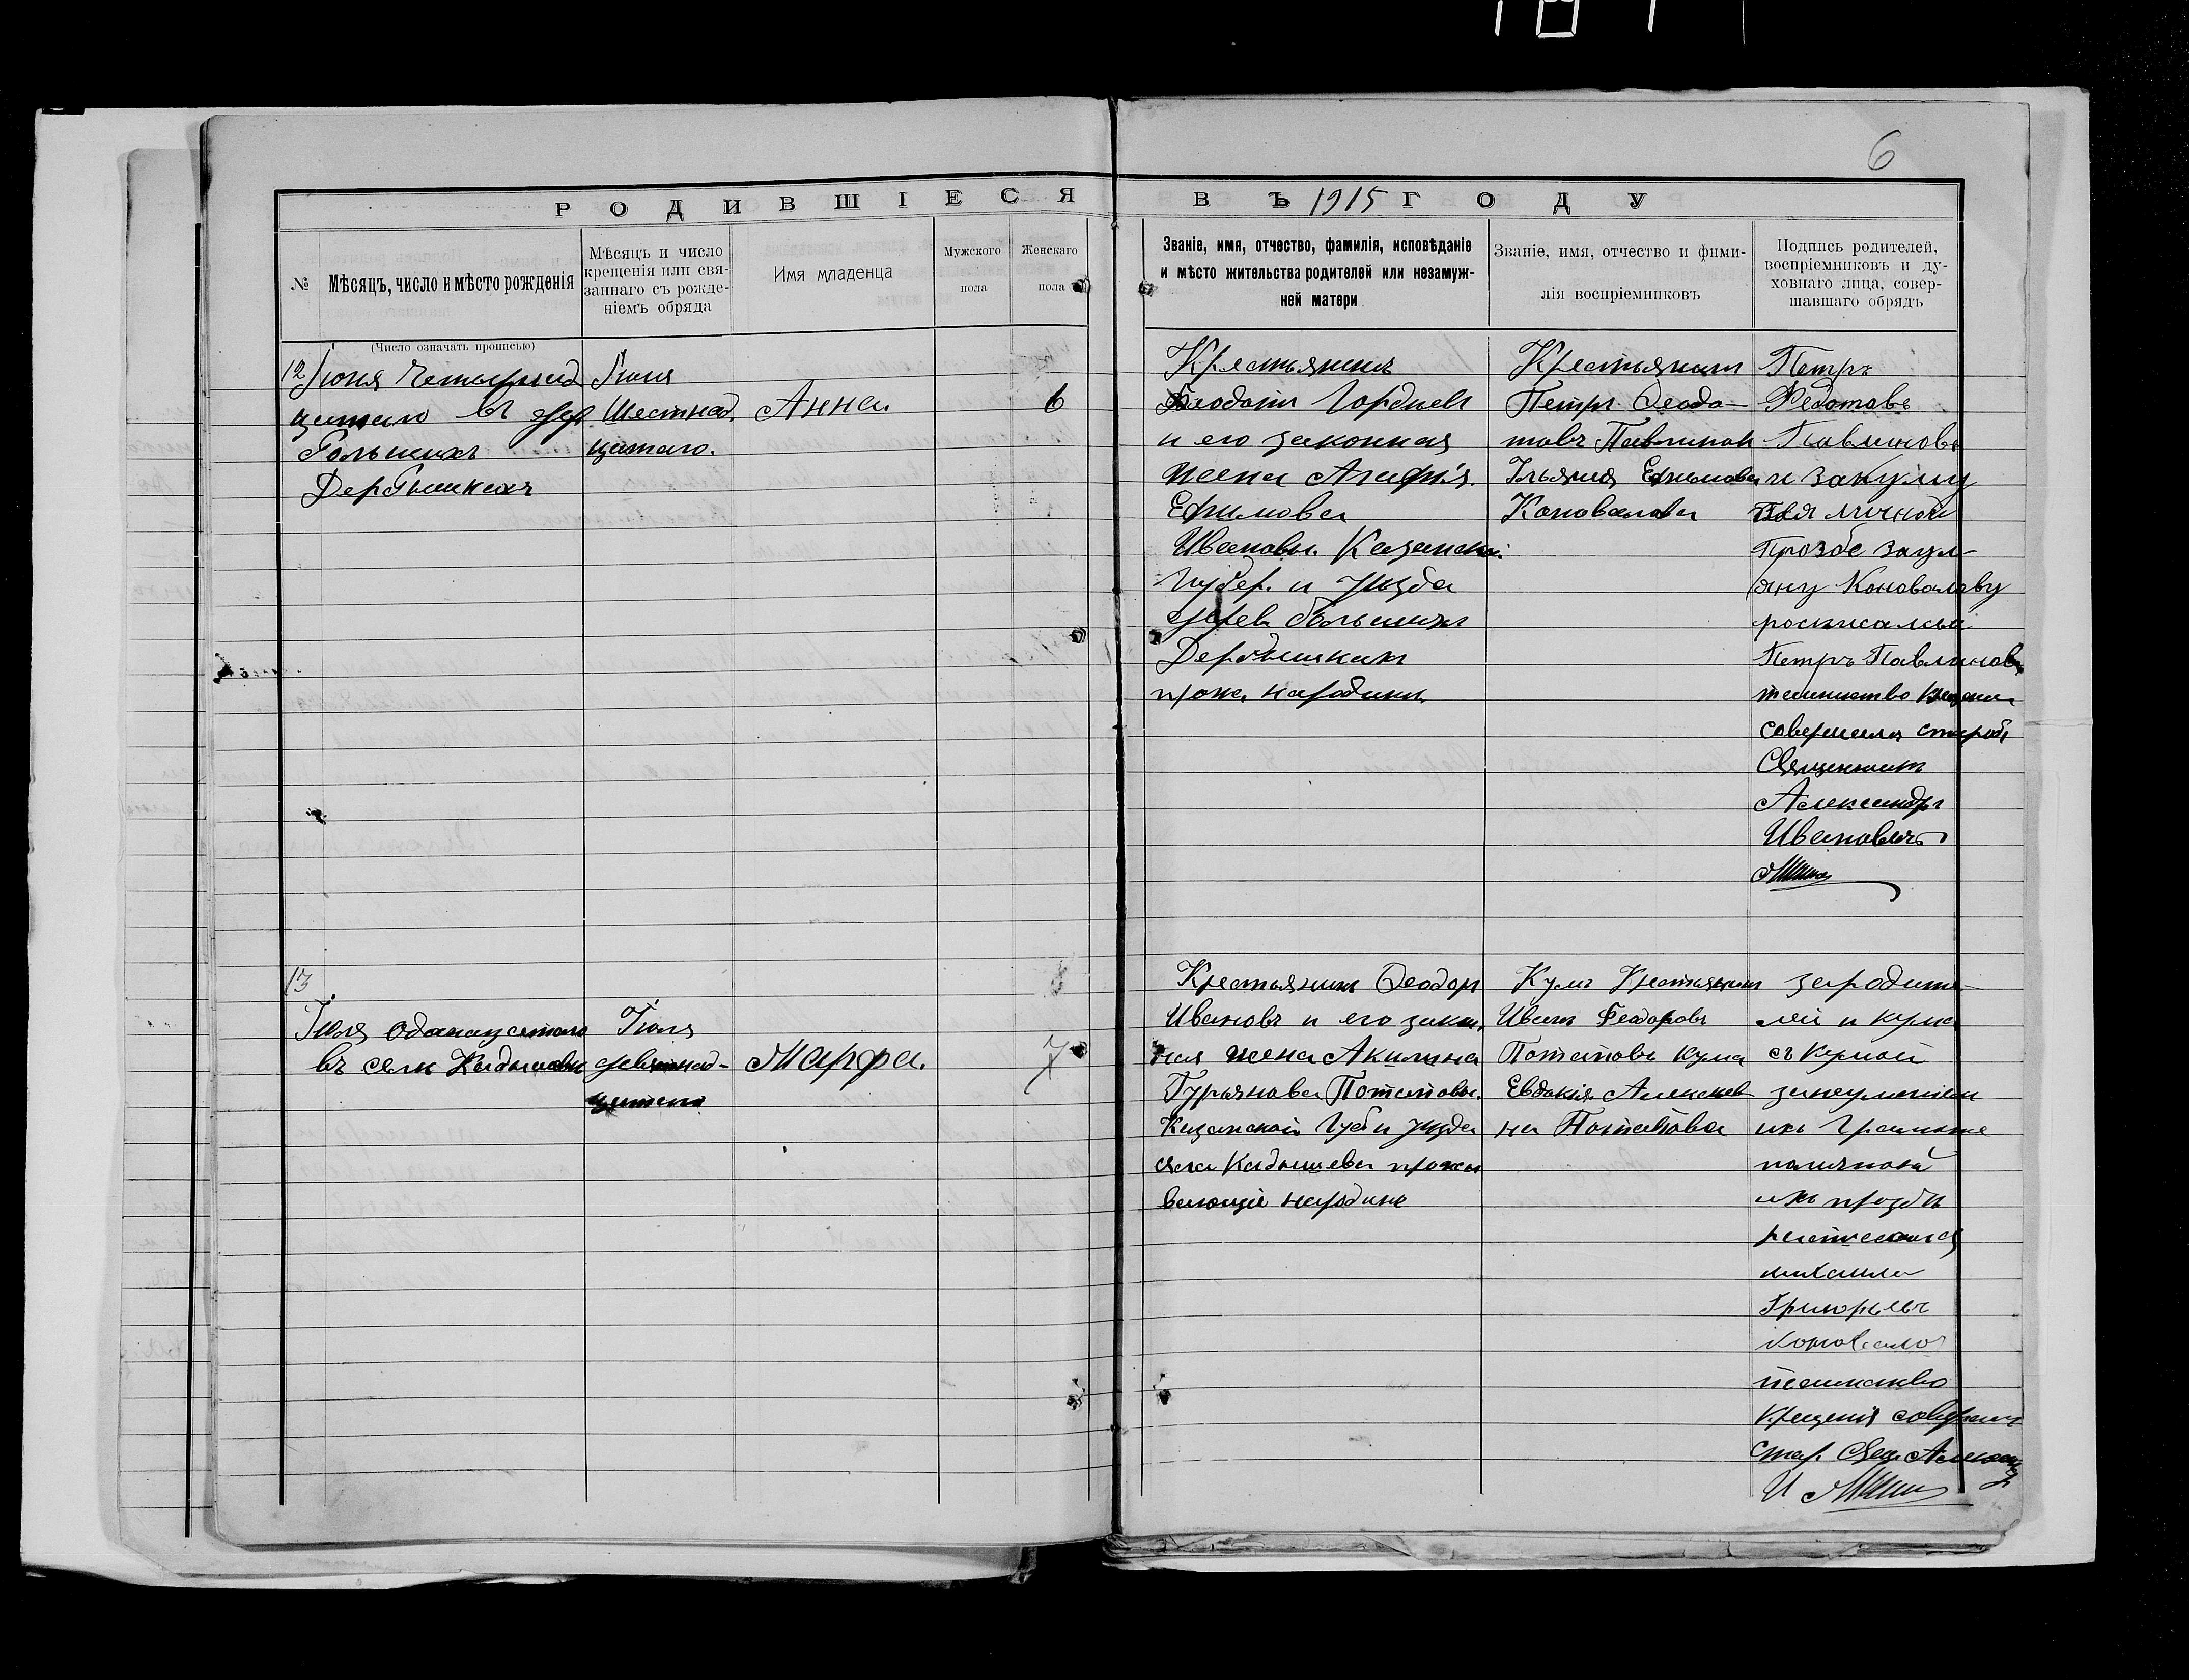 6
РОДИВШІЕСЯ ВЪ 1915 ГОДУ
№
Мѣсяцъ, число и мѣсто рожденія
Мѣсяцъ и число
крещенія или свя-
заннаго съ рожде-
ніемъ обряда
Имя младенца
Мужского
пола
Женскаго
пола
Званіе, имя, отчество, фамилія, исповѣданіе
и мѣсто жительства родителей или незамуж-
ней матери
Званіе, имя, отчество и фими-
лія воспріемниковъ
Подпись родителей,
воспріемниковъ и ду-
ховнаго лица, совер-
шавшаго обрядъ
(Число означать прописью)
12
Іюня Четырнад
цатаго въ дер
Дербышкахъ
Іюня
Шестнад
цатаго.
Анна
6
Крестьянинъ
Гордѣевъ
и его законная
жена Агафія
Ефимова
Ивановы Казанской
Губер. и уѣзда
дерев Большихъ
Дербышкахъ
прож. народинѣ
Крестьянинъ
Петръ Феодо-
товъ Павлинов
Ульянія Ефимова
Коновалова
Петръ
Федотовъ
Павлиновъ
и закуму
личной
Прозбе заул-
яну Коновалову
росписался
Петръ Павлиновъ
таинство крещения
совершилъ староб
Священникъ
Александръ
Ивановичъ
13
Іюля одинацатаго
въ селѣ Кадышевѣ
Іюля
девятнад-
цатаго
Марфа.
7
Крестьянинъ Феодоръ
Ивановъ и его закон
ная жена Акилина
Гурьянова Потаповы
Казанской Губ и уѣзда
села Кадышева прожи
вающіе народинѣ
Кумъ Крестьянинъ
Иванъ Феодоровъ
Потаповъ кума
Евдокія Алексѣев
на Потапова
зародите-
лей и кума
съ кумой
занеумѣніем
ихъ Грамоте
ихъ прозбѣ
росписался
михаила
Григорьевъ
коновало
таинство
Крещенія совершилъ
стар. Свящ. Александ
И